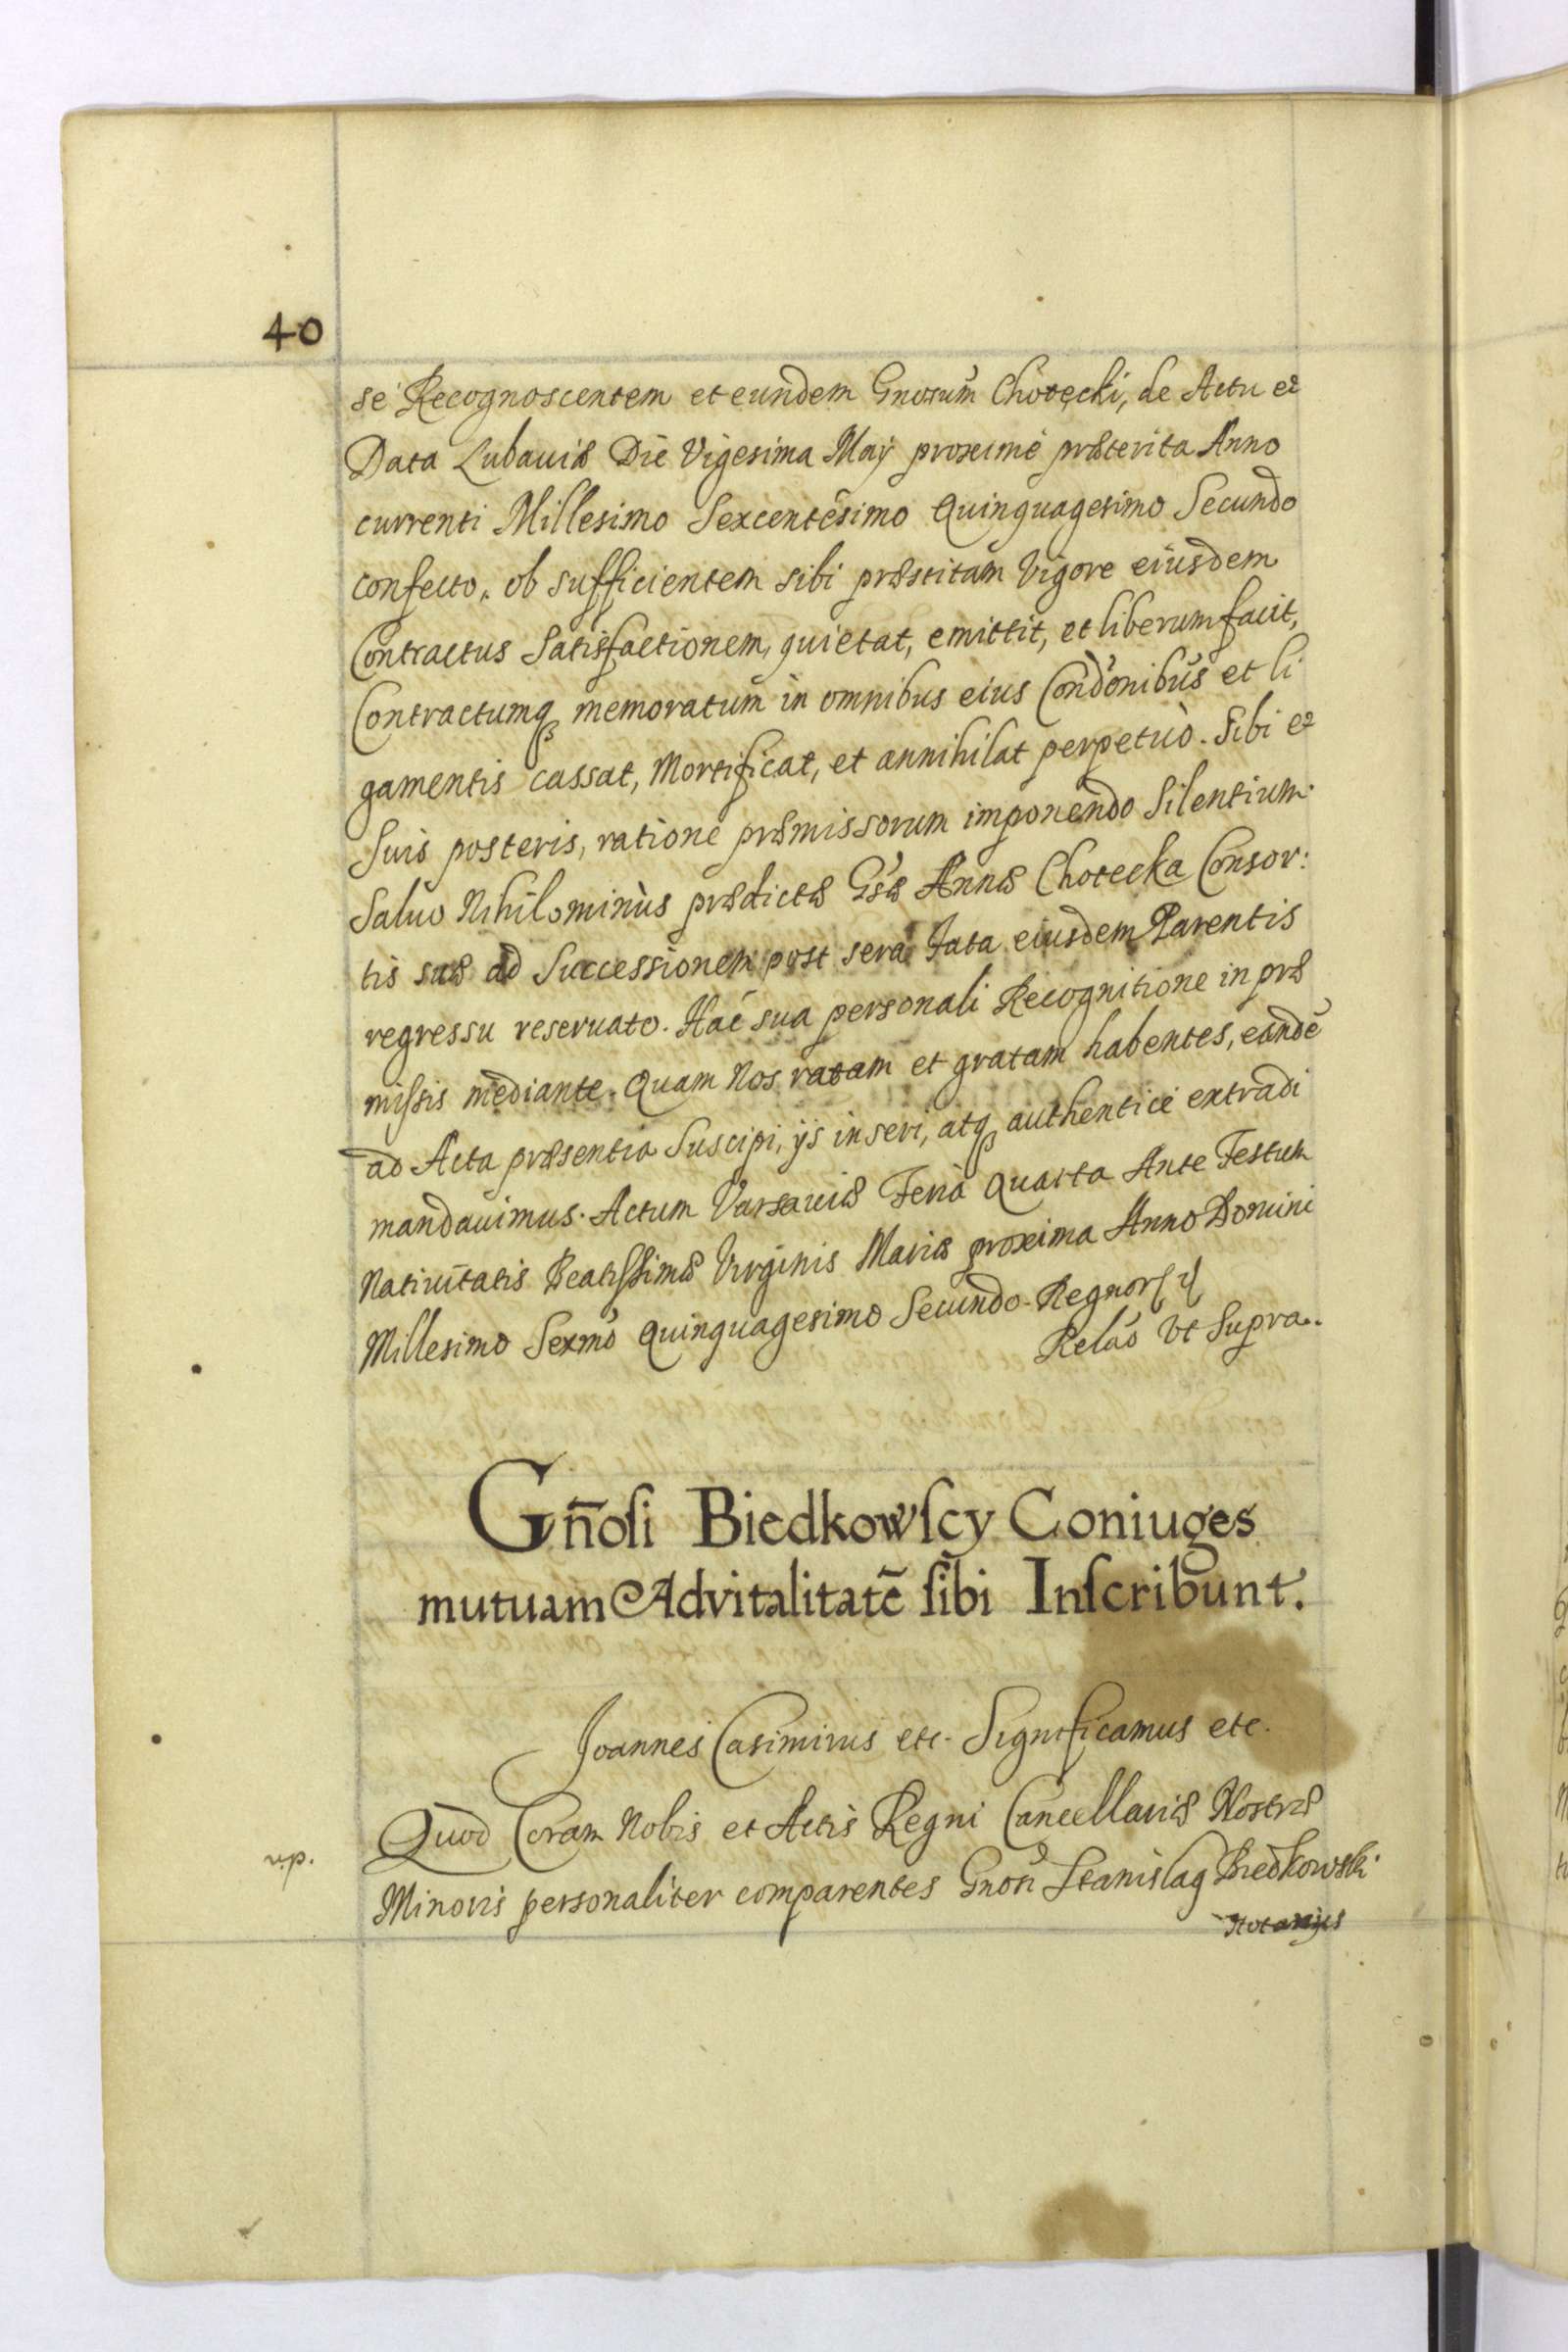 40
se Recognoscentem et eundem Gnosum Chotecki, de Actu et
Data Lubaviæ Die Vigesima Maÿ proximè præterita Anno
currenti Millesimo Sexcentesimo Quinquagesimo Secundo
confecto, ob sufficientem sibi præstitam Vigore eiusdem
Contractus Satisfactionem, quietat, emittit, et liberum facit,
Contractumq memoratum in omnibus eius Condonibus et li
gamentis cassat, Mortificat, et annihilat perpetuò. Sibi et
Suis posteris, ratione præmissorum imponendo Silentium.
Saluo Nihilominùs prædictæ Gsæ Annæ Chotecka Consor:
tis suæ ad Successionem post sera Fata eiusdem Parentis
regressu reseruato. Hac sua personali Recognitione in præ
missis mediante. Quam Nos ratam et gratam habentes, eandē
ad Acta præsentia Suscipi, ijs inseri, atq authenticè extradi
mandauimus. Actum Varsauiæ Feria Quarta Ante Festum
Natiuitatis Beatissimæ Virginis Mariæ proxima Anno Domini
Millesimo Sexmo Quinquagesimo Secundo. Regnor
Relao Vt Supra.
Gñosi Biedkowscy Coniuges
mutuam Advitalitatē sibi Inscribunt.
Joannes Casimirus etc. Significamus etc.
Quod Coram Nobis et Actis Regni Cancellariæ Nostræ
Minoris personaliter comparentes Gnosi Stanislaq Biedkowski
Notarijus